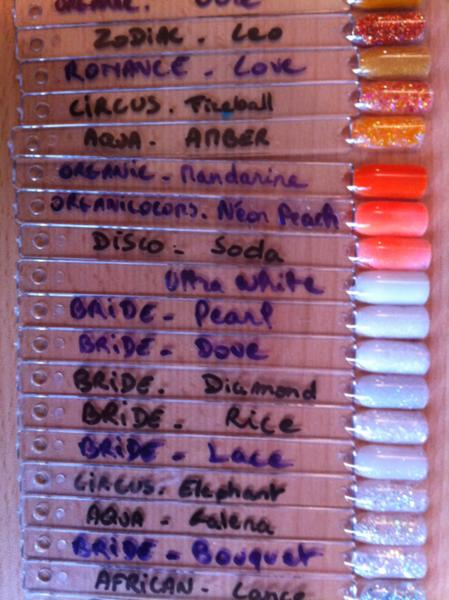 ORGANIC.
ZODIAC. LEO
ROMANCE - LOVE
CIRCUS. Fireball
AQUA. AMBER
ORGANIC - Mandarine
ORGANICOCOMS. Néon Peach
DISCO - Soda
Ultra White
BRIDE - Pearl
BRIDE - DOVE
BRIDE. Diamond
BRIDE - RICE
BRIDE - LACE
CIRCUS. Elephant
AQUA - Galena
BRIDE - Bouquet
AFRICAN - Lance